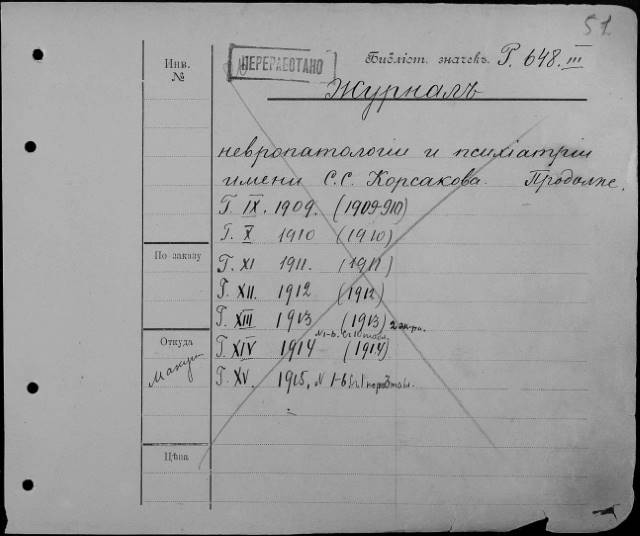 51.
Инв.
№
ПЕРЕРАБОТАНО
Библіст. значекъ. Р. 648. III
Журналъ
невропатологіи и психіатріи
имени С.С. Корсакова. Продолже.
Г. IX. 1909. (1909-910)
Г. X 1910 (1910)
По заказу
Г. XI 1911. (1911)
Г. XII. 1912 (1912)
Г. XIII 1913 (1913) 2 эк-ри.
Откуда
N 1-6.
Г. XIV 1914 (1914)
Г. XV. 1915, N 1-6
Цѣна